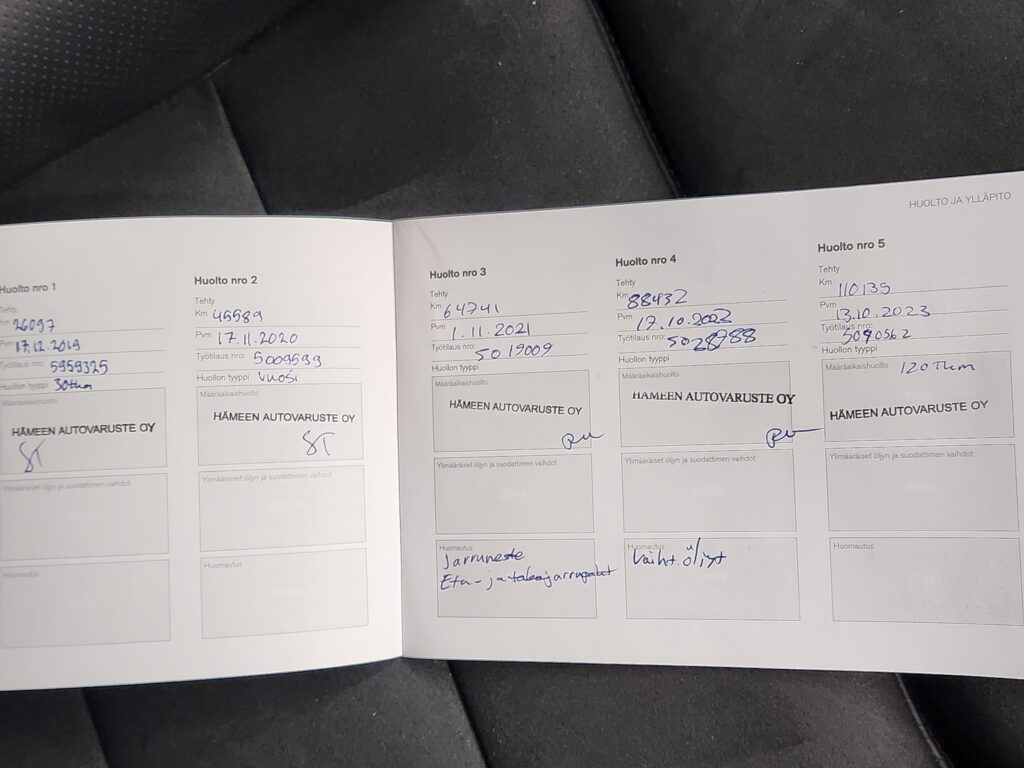 HUOLTO JA YLLÄPITO
Huolto nro 1
Tehty
Km 26097
Pvm 17.12.2019
Työtilaus nro: 5959325
Huollon tyyppi 30tkm
Määräaikaishuolto
HÄMEEN AUTOVARUSTE OY
ST
Ylimääräiset öljyn ja suodattimen vaihdot
Huomautus
Huolto nro 2
Tehty
Km 45589
Pvm 17.11.2020
Työtilaus nro: 5009539
Huollon tyyppi Vuosi
Määräaikaishuolto
HÄMEEN AUTOVARUSTE OY
ST
Ylimääräiset öljyn ja suodattimen vaihdot
Huomautus
Huolto nro 3
Tehty
Km 64741
Pvm 1.11.2021
Työtilaus nro: 5019009
Huollon tyyppi
Määräaikaishuolto
HÄMEEN AUTOVARUSTE OY
Ylimääräiset öljyn ja suodattimen vaihdot
Huomautus
Jarruneste
Etu- ja takajarrupalat
Huolto nro 4
Tehty
Km 88432
Pvm 17.10.2022
Työtilaus nro: 5028788
Huollon tyyppi
Määräaikaishuolto
HÄMEEN AUTOVARUSTE OY
Ylimääräiset öljyn ja suodattimen vaihdot
Huomautus
Vaiht.öljyt
Huolto nro 5
Tehty
Km 110135
Pvm 13.10.2023
Työtilaus nro: 5040562
Huollon tyyppi
Määräaikaishuolto 120 Tkm
HÄMEEN AUTOVARUSTE OY
Ylimääräiset öljyn ja suodattimen vaihdot
Huomautus